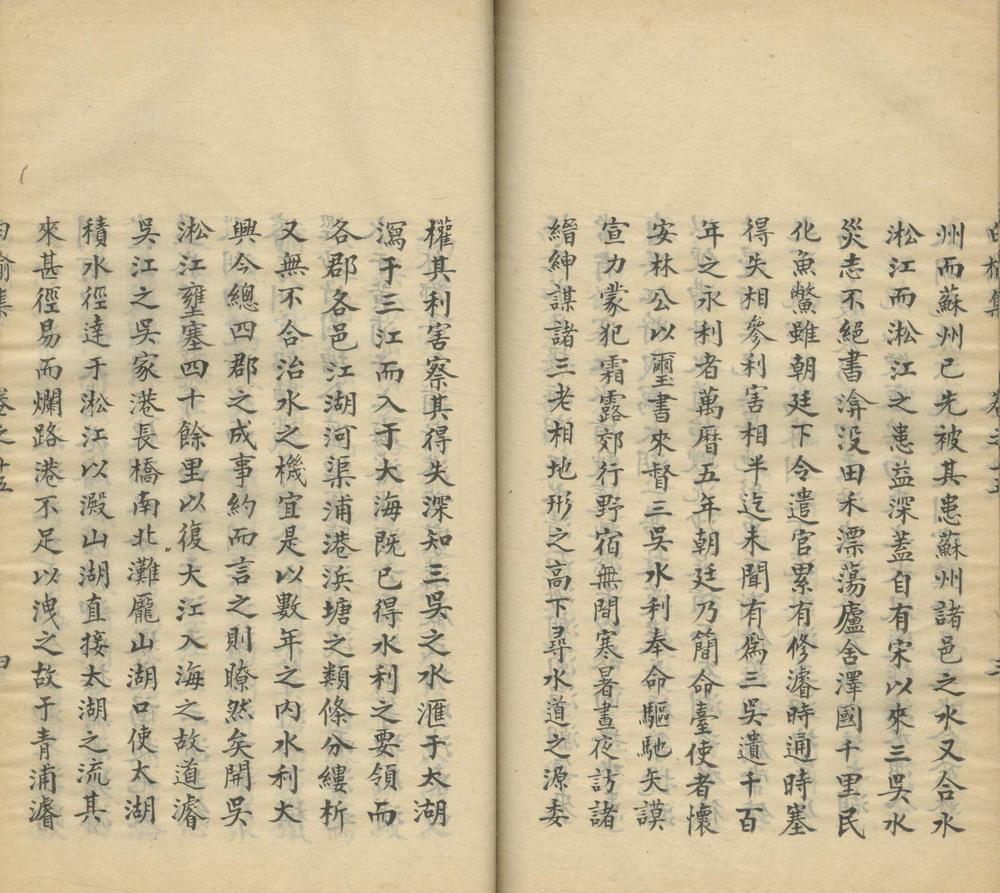 州而蘇州已先被其患蘇州諸邑之水又合水
淞江而淞江之患益深蓋自有宋以來三吳水
災志不絕書渰没田禾漂蕩廬舍澤國千里民
化魚鱉雖朝廷下令遣官累有修濬時通時塞
得失相參利害相半迄未聞有爲三吳遺千百
年之永利者萬曆五年朝廷乃簡命臺使者懷
安林公以璽書來督三吳水利奉命驅馳矢謨
宣力蒙犯霜露郊行野宿無間寒暑晝夜訪諸
縉紳謀諸三老相地形之高下尋水道之源委
權其利害察其得失深知三吳之水滙于太湖
瀉于三江而入于大海既已得水利之要領而
各郡各邑江湖河渠浦港浜塘之類條分縷析
又無不合治水之機宜是以數年之内水利大
興今總四郡之成事約而言之則瞭然矣開吳
淞江壅塞四十餘里以復大江入海之故道濬
吳江之吳家港長橋南北灘龐山湖口使太湖
積水徑達于淞江以澱山湖直接太湖之流其
來甚徑易而爛路港不足以洩之故于青浦濬
白榆集 卷之十五